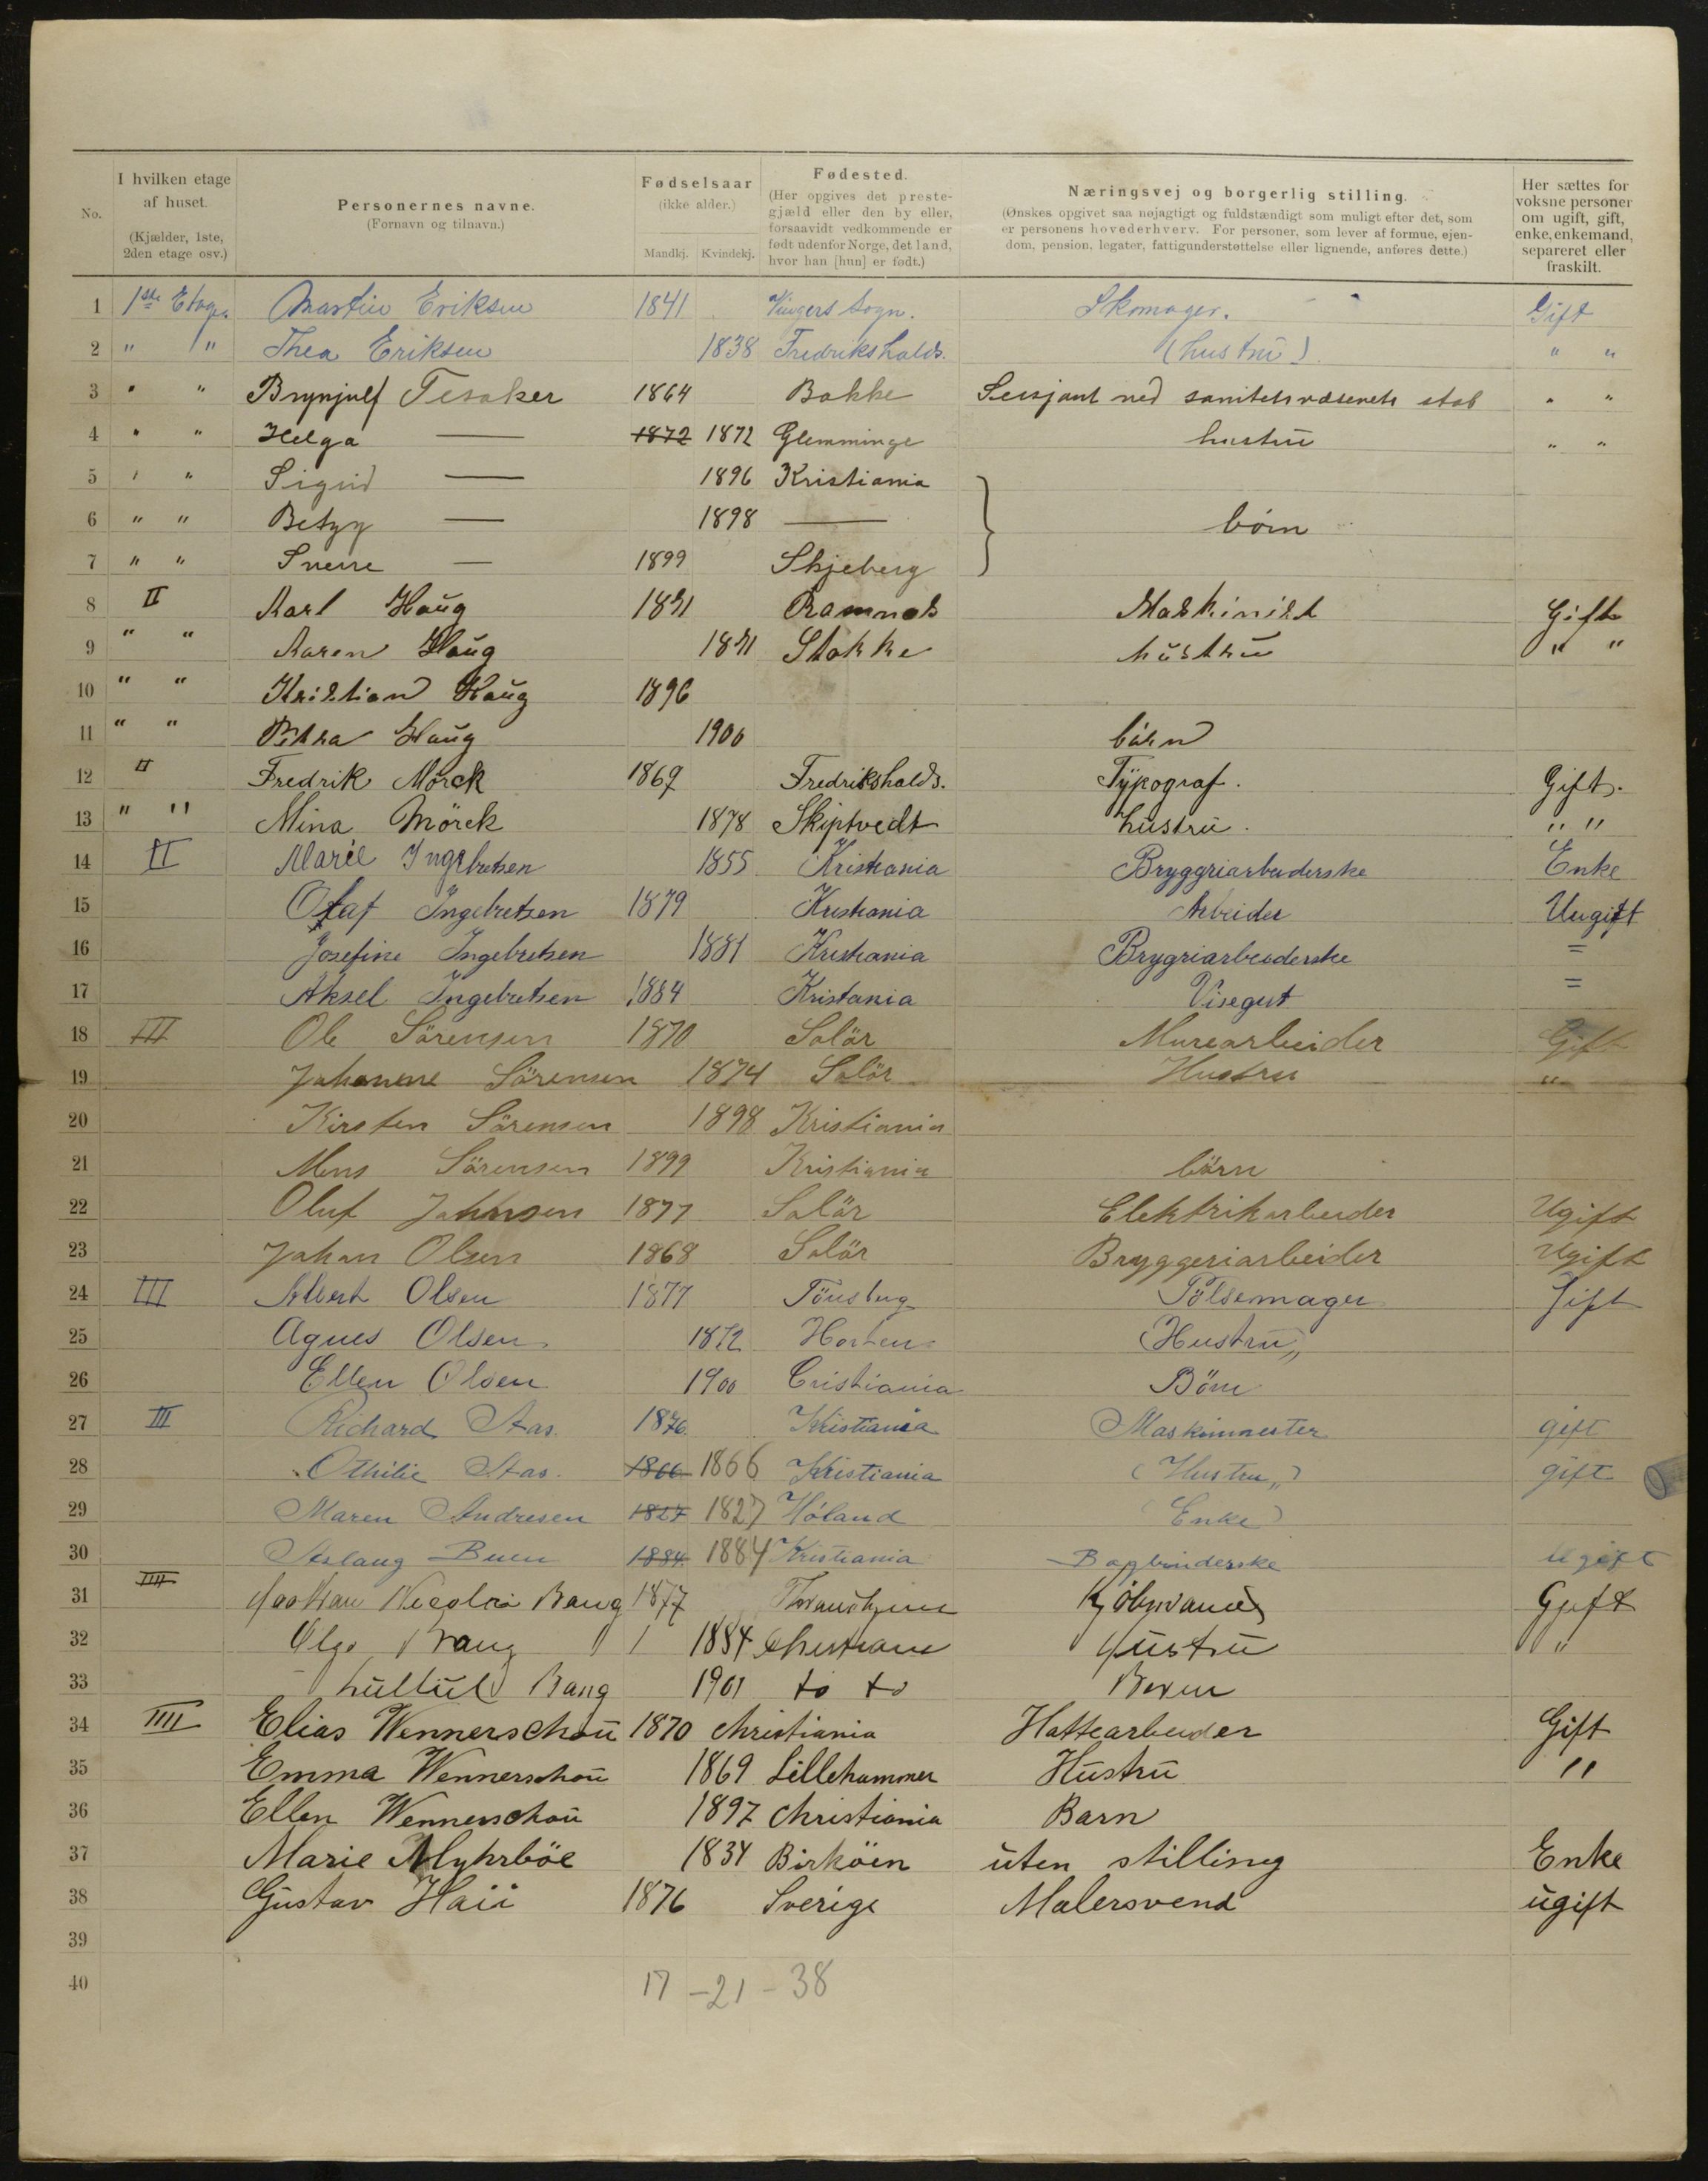 No. | I hvilken etage af huset. (Kjælder, 1ste, 2den etage osv.) | Personernes navne. (Fornavn og tilnavn.) | Fødselsaar (ikke alder.) Mandkj. Kvindekj. | Fødested. (Her opgives det prestegjæld eller den by eller, forsaavidt vedkommende er født udenfor Norge, det land, hvor han [hun] er født.) | Næringsvej og borgerlig stilling. (Ønskes opgivet saa nøjagtigt og fuldstændigt som muligt efter det, som er personens hovederhverv. For personer, som lever af formue, ejendom, pension, legater, fattigunderstøttelse eller lignende, anføres dette.) | Her sættes for voksne personer om ugift, gift, enke, enkemand, separeret eller fraskilt.
1 1ste Etage Martin Eriksen 1841 Vingers Sogn. Skomager. Gift
2 " " Thea Eriksen 1838 Fredrikshalds. (hustru) " "
3 " " Brynjulf Tesaker 1864 Bakke Sersjant ved sanitetsvæsenets stab " "
4 " " Helga — 1872 1872 Glemminge hustru " "
5 " " Sigrid — 1896 Kristiania
6 " " Betzy — 1898 — børn
7 " " Sverre — 1899 Skjeberg
8 II Karl Haug 1871 Ramnes Maskinist Gift
9 " " Karen Haug 1871 Stokke hustru " "
10 " " Kristian Haug 1896
11 " " Petra Haug 1900 børn
12 II Fredrik Mörck 1869 Fredrikshalds. Typograf. Gift.
13 " " Mina Mörck 1878 Skiptvedt hustru. " "
14 II Marie Ingebretsen 1855 Kristiania Bryggriarbeiderske Enke
15 Olaf Ingebretsen 1879 Kristiania Arbeider Uugift
16 Josefine Ingebretsen 1881 Kristiania Brygriarbeiderske =
17 Aksel Ingebretsen 1884 Kristania Visegut =
18 III Ole Sörensen 1870 Solör Murearbeider Gift
19 Johanne Sörensen 1874 Solör Hustru "
20 Kirsten Sörensen 1898 Kristiania
21 Mons Sörensen 1899 Kristiania börn
22 Oluf Johnsen 1877 Solör Elektrikarbeider Ugift
23 Johan Olsen 1868 Solör Bryggeriarbeider Ugift
24 III Albert Olsen 1877 Tönsberg Pölsemager Gift
25 Agnes Olsen 1872 Horten (Hustru)
26 Ellen Olsen 1900 Cristiania Börn
27 III Richard Aas. 1876 Kristiania Maskinmester gift
28 Othilie Aas. 1866 1866 Kristiania (Hustru) gift
29 Maren Andresen 1827 1827 Höland (Enke)
30 Aslaug Buen 1884 1884 Kristiania Bogbinderske Ugift
31 IIII Nicolai Bang 1877 Kjöbmand Gift
32 Olga Bang 1884 Christiania Hustru "
33 Bang 1901 to to
34 IIII Elias Wennerschou 1870 Christiania Hattearbeider Gift
35 Emma Wennerschou 1869 Lillehammer Hustru "
36 Ellen Wennerschou 1897 Christiania Barn
37 Marie Myhrböe 1834 Birköen uten stilling Enke
38 Gustav Haii 1876 Sverige Malersvend ugift
39
40 17 - 21 - 38